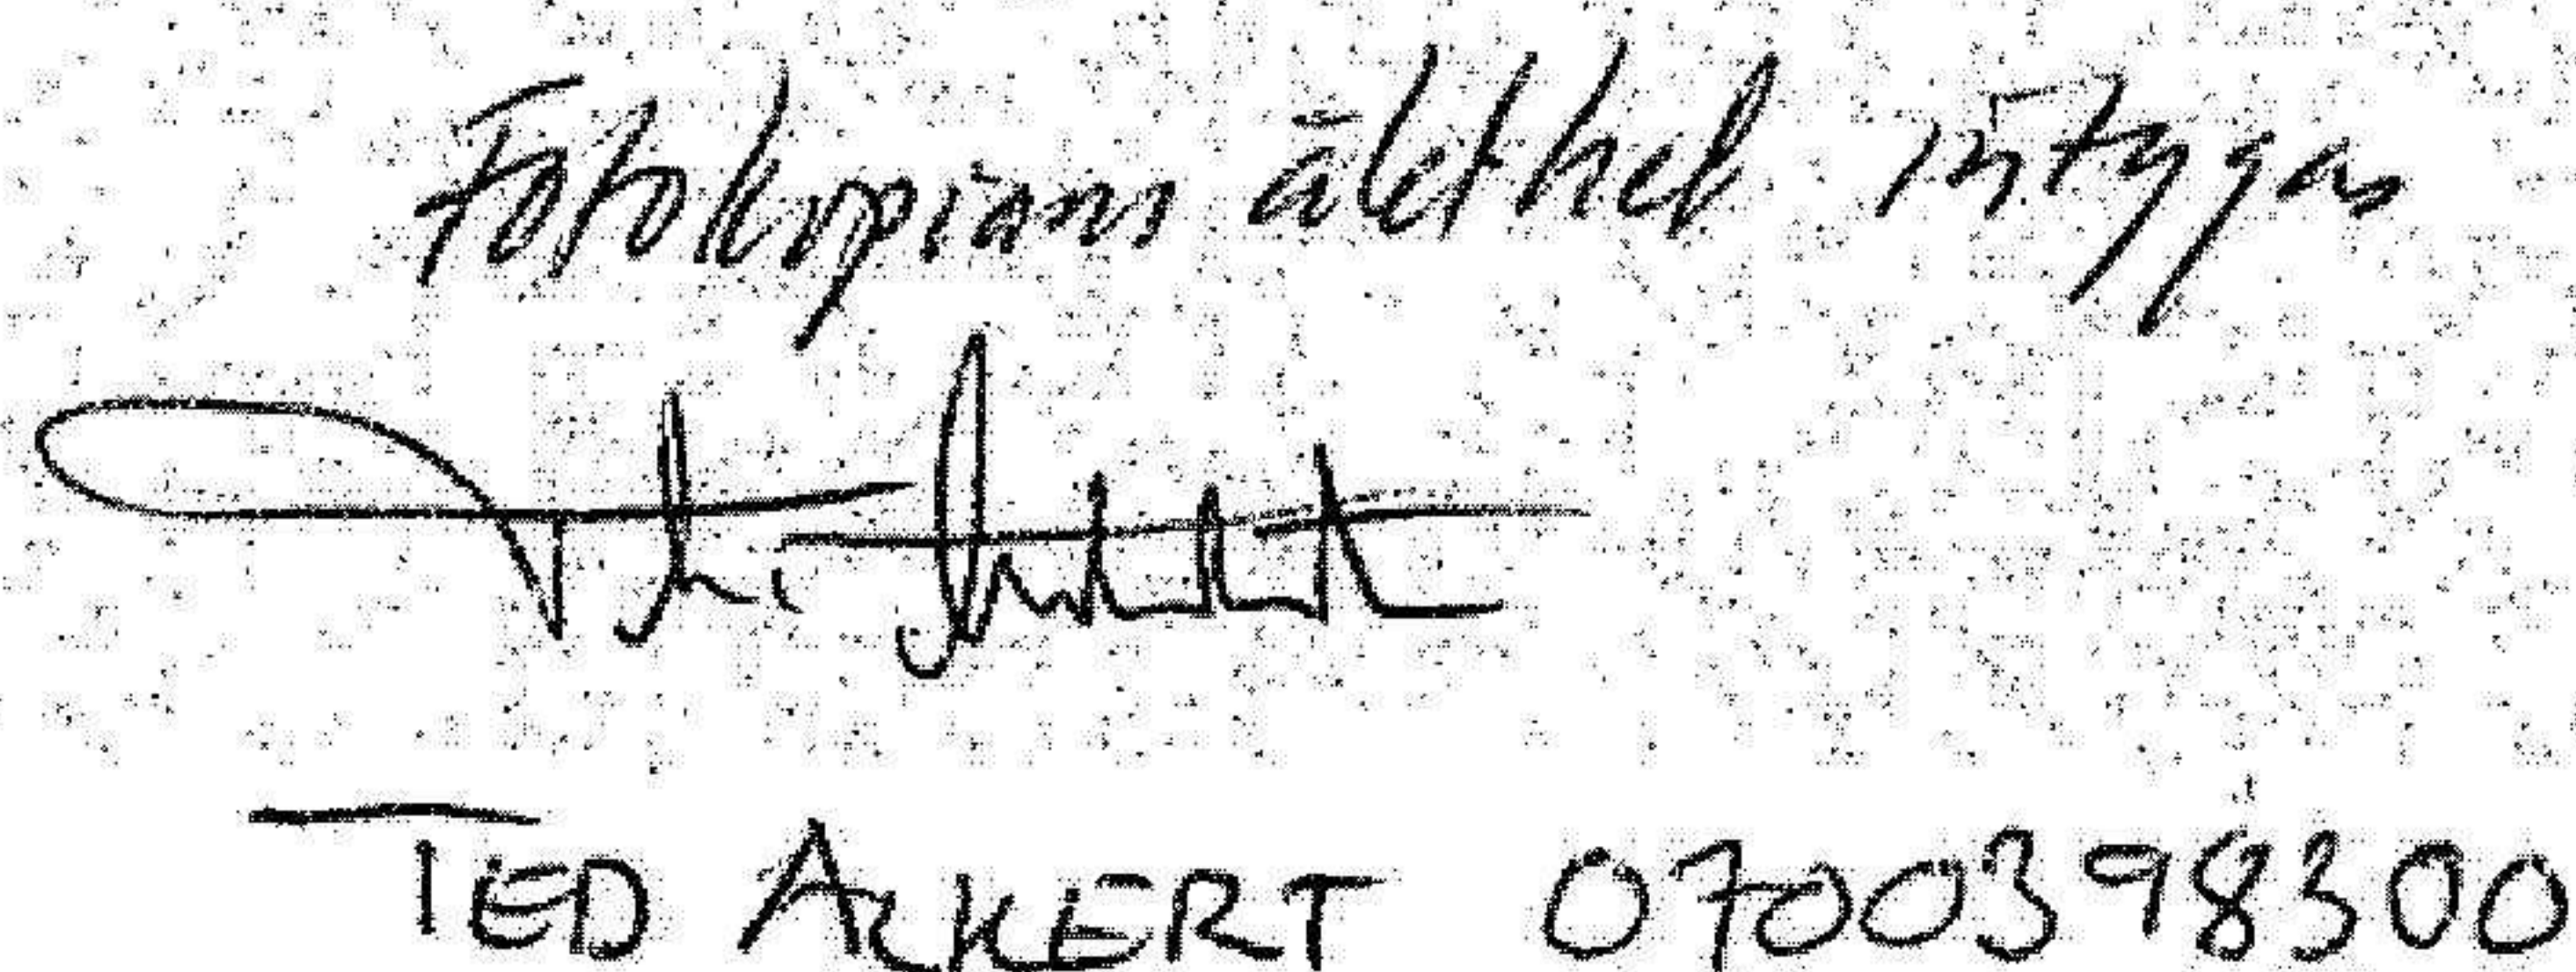 Fotokopians äkthet intygas
TED ACKERT 0700398300